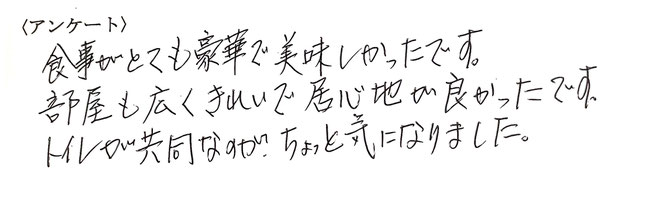 〈アンケート〉
食事がとても豪華で美味しかったです。
部屋も広くきれいで居心地が良かったです。
トイレが共同なのが、ちょっと気になりました。